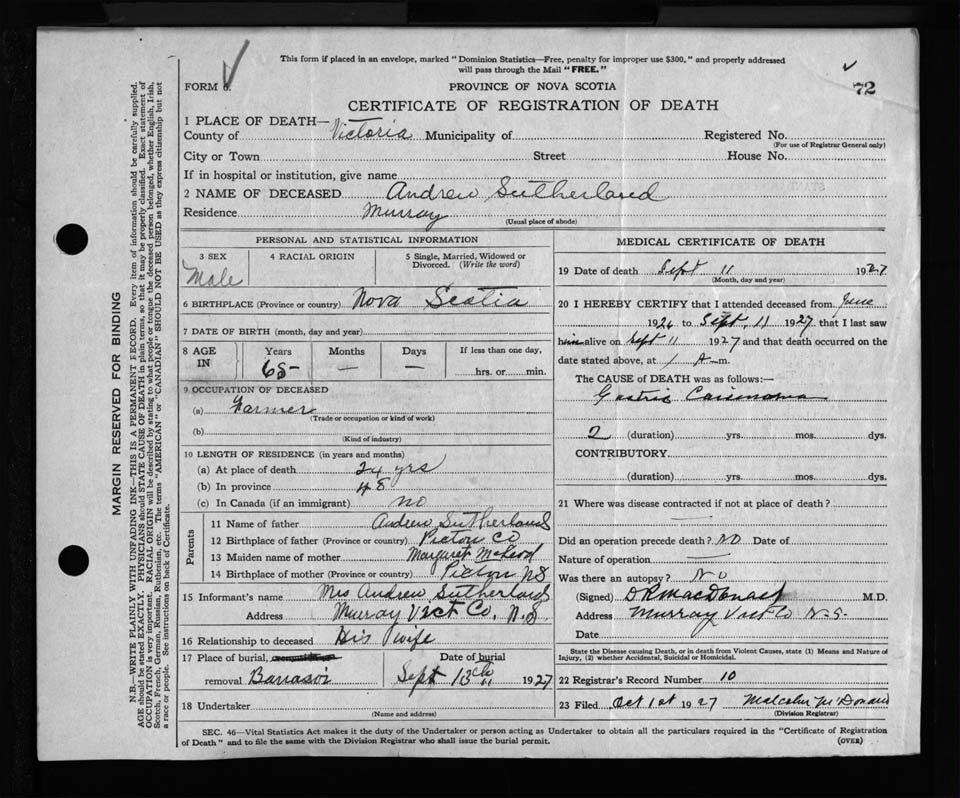 This form if placed in an envelope, marked "Dominion Statistics—Free, penalty for improper use $300," and properly addressed
will pass through the Mail "FREE."
FORM 6. PROVINCE OF NOVA SCOTIA 72
CERTIFICATE OF REGISTRATION OF DEATH
1 PLACE OF DEATH—
County of Victoria Municipality of Registered No.
(For use of Registrar General only)
City or Town Street House No.
If in hospital or institution, give name
2 NAME OF DECEASED Andrew Sutherland
Residence Murray
(Usual place of abode)
PERSONAL AND STATISTICAL INFORMATION
3 SEX 4 RACIAL ORIGIN 5 Single, Married, Widowed or Divorced. (Write the word)
Male
6 BIRTHPLACE (Province or country) Nova Scotia
7 DATE OF BIRTH (month, day and year)
8 AGE IN Years Months Days If less than one day,
65 — — hrs. or min.
9 OCCUPATION OF DECEASED
(a) Farmer
(Trade or occupation or kind of work)
(b)
(Kind of industry)
10 LENGTH OF RESIDENCE (in years and months)
(a) At place of death 24 yrs
(b) In province 48
(c) In Canada (if an immigrant) no
Parents
11 Name of father Andrew Sutherland
12 Birthplace of father (Province or country) Picton Co
13 Maiden name of mother Margaret McLeod
14 Birthplace of mother (Province or country) Picton NS
15 Informant's name Mrs Andrew Sutherland
Address Murray Vict Co. N.S.
16 Relationship to deceased His wife
17 Place of burial, Date of burial
removal Barrasoi Sept 13th 1927
18 Undertaker
(Name and address)
MEDICAL CERTIFICATE OF DEATH
19 Date of death Sept 11 1927
(Month, day and year)
20 I HEREBY CERTIFY that I attended deceased from June
1926 to Sept. 11 1927 that I last saw
him alive on Sept 11 1927 and that death occurred on the
date stated above, at 1 A m.
The CAUSE OF DEATH was as follows:—
Gastric Carcinoma
2 (duration) yrs. mos. dys.
CONTRIBUTORY
(duration) yrs. mos. dys.
21 Where was disease contracted if not at place of death? —
Did an operation precede death? NO Date of
Nature of operation —
Was there an autopsy? No
(Signed) DRMacDonald M.D.
Address Murray Vict Co N.S.
Date
State the Disease causing Death, or in death from Violent Causes, state (1) Means and Nature of
Injury, (2) whether Accidental, Suicidal or Homicidal.
22 Registrar's Record Number 10
23 Filed Oct 1st 1927 Malcolm McDonald
(Division Registrar)
SEC. 46—Vital Statistics Act makes it the duty of the Undertaker or person acting as Undertaker to obtain all the particulars required in the "Certificate of Registration
of Death" and to file the same with the Division Registrar who shall issue the burial permit. (OVER)
MARGIN RESERVED FOR BINDING
N.B.—WRITE PLAINLY WITH UNFADING INK—THIS IS A PERMANENT RECORD. Every item of information should be carefully supplied.
AGE should be stated EXACTLY. PHYSICIANS should STATE CAUSE OF DEATH in plain terms, so that it may be properly classified. Exact statement of
OCCUPATION is very important. RACIAL ORIGIN will be described by stating to what people or tongue the deceased person belonged, whether English, Irish,
Scotch, French, German, Russian, Ruthenian, etc. The terms "AMERICAN" or "CANADIAN" SHOULD NOT BE USED as they express citizenship but not
a race or people. See instructions on back of Certificate.